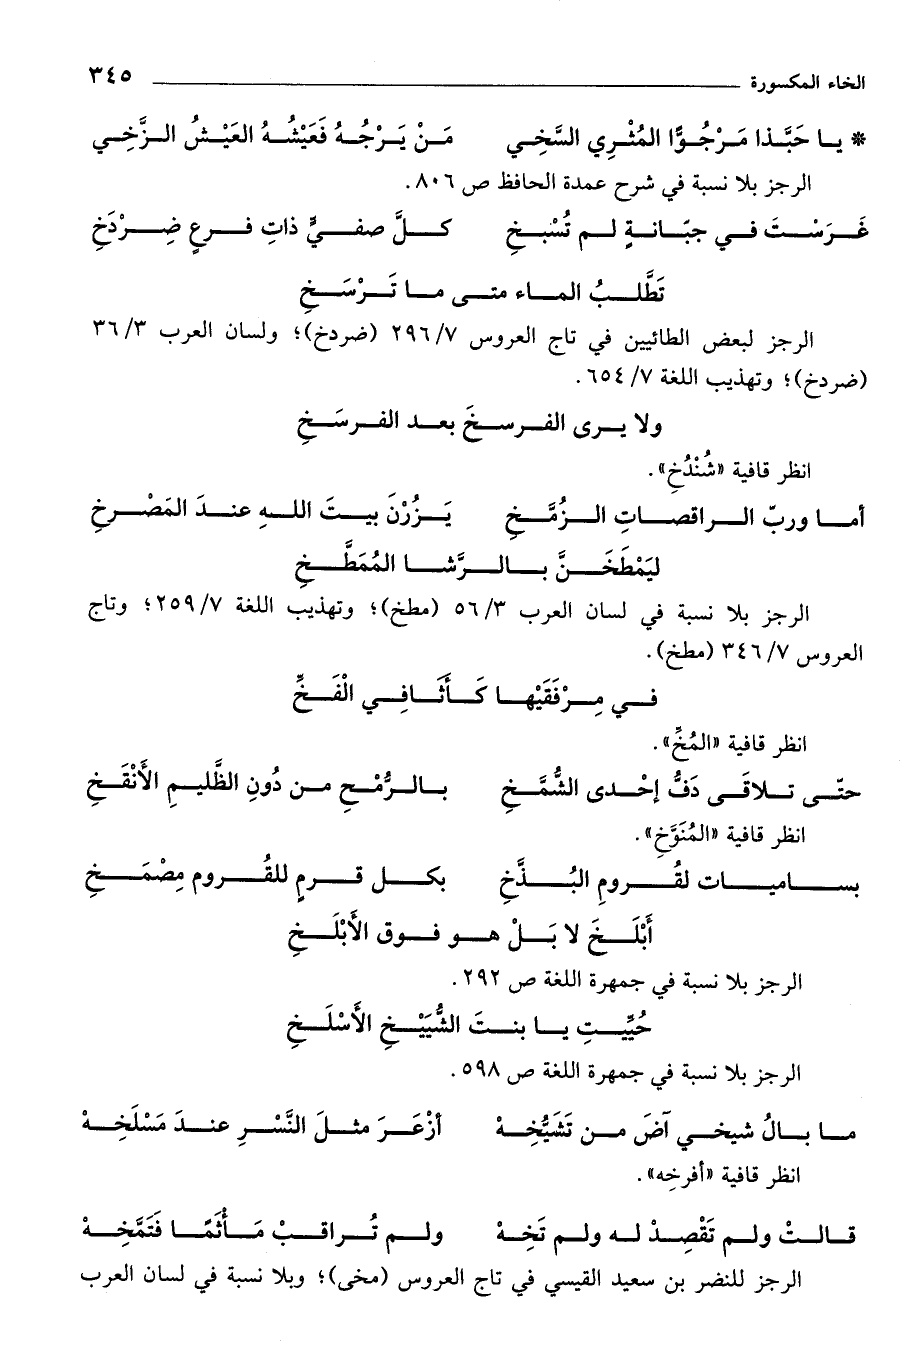 الخاء المكسورة ٣٤٥
* يا حَبَّذا مَرْجُوًّا المُثْرِي السَّخِي مَنْ يَرْجُهُ فَعَيْشُهُ العَيْشُ الرَّخِي
الرجز بلا نسبة في شرح عمدة الحافظ ص ٨٠٦.
غَرَسْتَ في جبّانةٍ لم تُسْبخِ كلَّ صفيٍّ ذاتِ فرعٍ ضِرْدَخِ
تَطَّلبُ الماء متى ما تَرْسَخِ
الرجز لبعض الطائيين في تاج العروس ٢٩٦/٧ (ضردخ)؛ ولسان العرب ٣٦/٣
(ضردخ)؛ وتهذيب اللغة ٦٥٤/٧.
ولا يرى الفرسخَ بعد الفرسَخِ
انظر قافية «شُنْدُخِ».
أما وربّ الراقصاتِ الزُمَّخِ يَزُرْنَ بيتَ اللهِ عندَ المَصْرخِ
ليَمْطَخَنَّ بالرَّشا المُمَطَّخِ
الرجز بلا نسبة في لسان العرب ٥٦/٣ (مطخ)؛ وتهذيب اللغة ٢٥٩/٧؛ وتاج
العروس ٣٤٦/٧ (مطخ).
في مِرْفَقَيْها كَأَثَافِي الْفَخِّ
انظر قافية «المُخِّ».
حتّى تلاقَى دَفُّ إحْدى الشُّمَّخِ بالرُّمْحِ من دُونِ الظَّليمِ الأَنْقَخِ
انظر قافية «المُنَوَّخِ».
بساميات لقُرومِ البُذَّخِ بكل قرمٍ للقُروم مِصْمَخِ
أَبْلَخَ لا بَلْ هو فوق الأَبْلَخِ
الرجز بلا نسبة في جمهرة اللغة ص ٢٩٢.
حُيِّيتِ يا بنتَ الشُّيَيْخِ الأَسْلَخِ
الرجز بلا نسبة في جمهرة اللغة ص ٥٩٨.
ما بالُ شيخي آضَ من تَشَيُّخِهْ أزْعَرَ مثلَ النَّسْرِ عندَ مَسْلَخِهْ
انظر قافية «أفرخِه».
قالتْ ولم تَقْصِدْ له ولم تَخِهْ ولم تُراقبْ مَأْثَمًا فَتَمَّخِهْ
الرجز للنضر بن سعيد القيسي في تاج العروس (مخى)؛ وبلا نسبة في لسان العرب